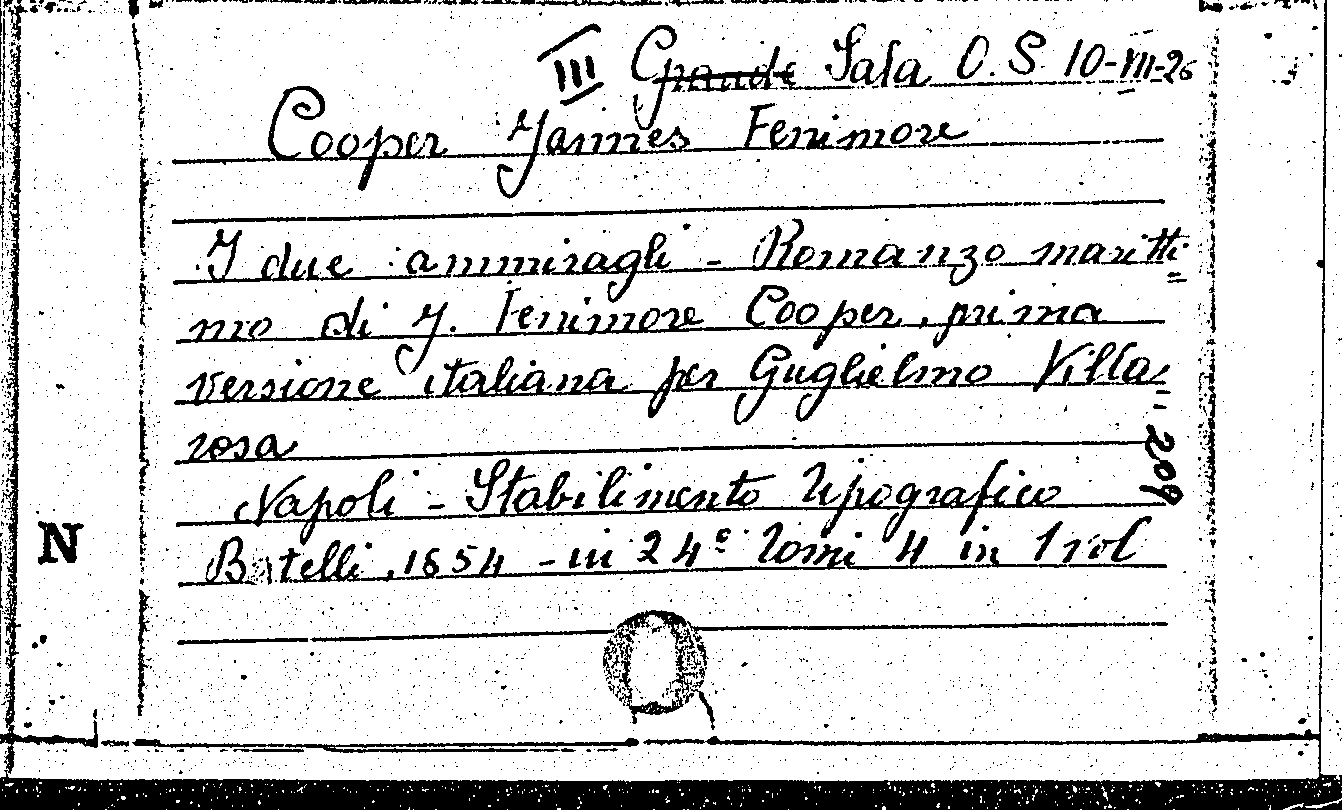 III Grande Sala O. S. 10-VIII-26
Cooper James Fenimore
I due ammiragli - Romanzo maritti=
mo di J. Fenimore Cooper, prima
versione italiana per Guglielmo Villa=
rosa
209
Napoli - Stabilimento Tipografico
Batelli, 1854 - in 24° Tomi 4 in 1 vol
N